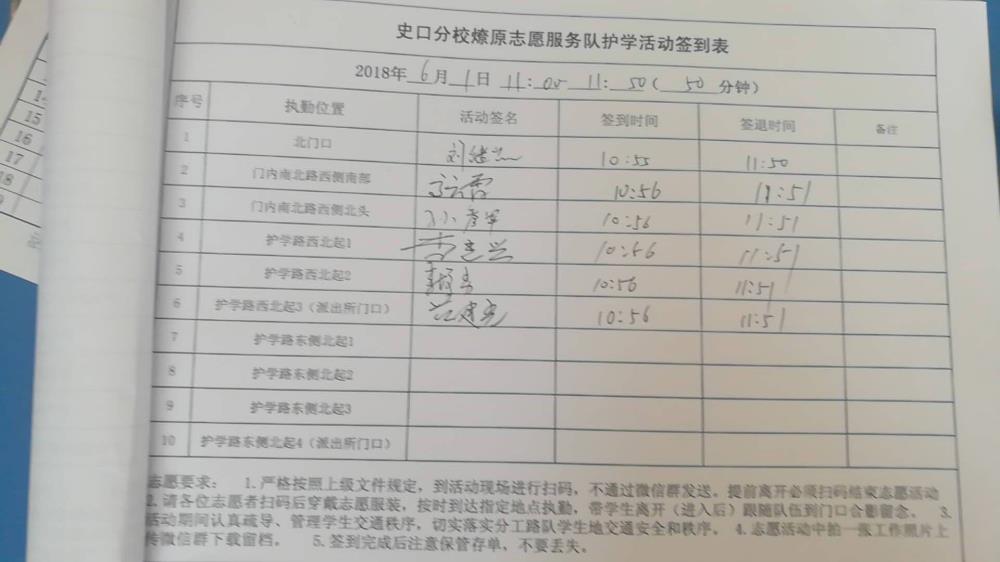 史口分校燎原志愿服务队护学活动签到表
2018年 6月 1日 11:00 11:50( 50 分钟)
序号 执勤位置 活动签名 签到时间 签退时间 备注
1 北门口 10:55 11:50
2 门内南北路西侧南部 10:56 11:51
3 门内南北路西侧北头 10:56 11:51
4 护学路西北起1 10:56 11:51
5 护学路西北起2 10:56 11:51
6 护学路西北起3（派出所门口） 10:56 11:51
7 护学路东侧北起1
8 护学路东侧北起2
9 护学路东侧北起3
10 护学路东侧北起4（派出所门口）
志愿要求： 1.严格按照上级文件规定，到活动现场进行扫码，不通过微信群发送。提前离开必须扫码结束志愿活动
2.请各位志愿者扫码后穿戴志愿服装，按时到达指定地点执勤，带学生离开（进入后）跟随队伍到门口合影留念。 3.
活动期间认真疏导、管理学生交通秩序，切实落实分工路队学生地交通安全和秩序。 4.志愿活动中拍一张工作照片上
传微信群下载留档。 5.签到完成后注意保管存单，不要丢失。
15
16
17